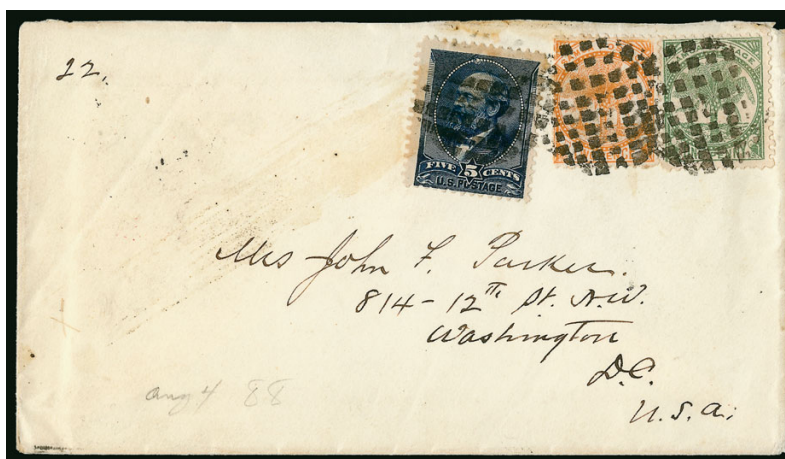 22.
FIVE 5 CENTS
U.S. POSTAGE
Mrs John F. Parker.
814-12th St. N.W.
Washington
D.C.
U.S.A.
Aug 4 88